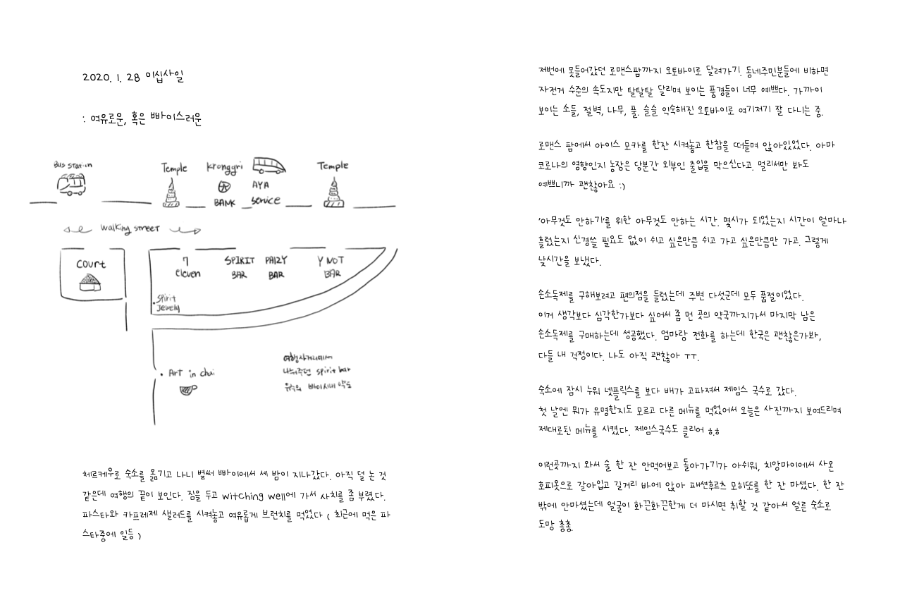 2020. 1. 28 이십사일
: 여유로운, 혹은 빠이스러운
Bus station
Temple
Krongyri
BANK
AYA
service
Temple
walking street
Court
7
Eleven
SPIRIT
BAR
PAIZY
BAR
Y NOT
BAR
spirit
Jewely
Art in chai
나눠주던 spirit bar
체르케우로 숙소를 옮기고 나니 벌써 빠이에서 세 밤이 지나갔다. 아직 덜 논 것
같은데 여행의 끝이 보인다. 짐을 두고 witching well에 가서 사치를 좀 부렸다.
파스타와 카프레제 샐러드를 시켜놓고 여유롭게 브런치를 먹었다 ( 최근에 먹은 파
스타중에 일등 )
저번에 못들어갔던 로맨스팜까지 오토바이로 달려가기. 동네주민분들에 비하면
자전거 수준의 속도지만 탈탈탈 달리며 보이는 풍경들이 너무 예쁘다. 가까이
보이는 소들, 절벽, 나무, 풀. 슬슬 익숙해진 오토바이로 여기저기 잘 다니는 중.
로맨스 팜에서 아이스 모카를 한잔 시켜놓고 한참을 떠들며 앉아있었다. 아마
코로나의 영향인지 농장은 당분간 외부인 출입을 막으신다고. 멀리서만 봐도
예쁘니까 괜찮아요 :)
'아무것도 안하기'를 위한 아무것도 안하는 시간. 몇시가 되었는지 시간이 얼마나
흘렀는지 신경쓸 필요도 없이 쉬고 싶은만큼 쉬고 가고 싶은만큼만 가고. 그렇게
낮시간을 보냈다.
손소독제를 구해보려고 편의점을 들렀는데 주변 다섯군데 모두 품절이었다.
이거 생각보다 심각한가보다 싶어서 좀 먼 곳의 약국까지가서 마지막 남은
손소독제를 구매하는데 성공했다. 엄마랑 전화를 하는데 한국은 괜찮은가봐,
다들 내 걱정이다. 나도 아직 괜찮아 ㅠㅠ.
숙소에 잠시 누워 넷플릭스를 보다 배가 고파져서 제임스 국수로 갔다.
첫 날엔 뭐가 유명한지도 모르고 다른 메뉴를 먹었어서 오늘은 사진까지 보여드리며
제대로된 메뉴를 시켰다. 제임스국수도 클리어 ㅎㅎ
이런곳까지 와서 술 한 잔 안먹어보고 돌아가기가 아쉬워, 치앙마이에서 사온
호피옷으로 갈아입고 길거리 바에 앉아 패션후르츠 모히또를 한 잔 마셨다. 한 잔
밖에 안마셨는데 얼굴이 화끈화끈한게 더 마시면 취할 것 같아서 얼른 숙소로
도망 총총.